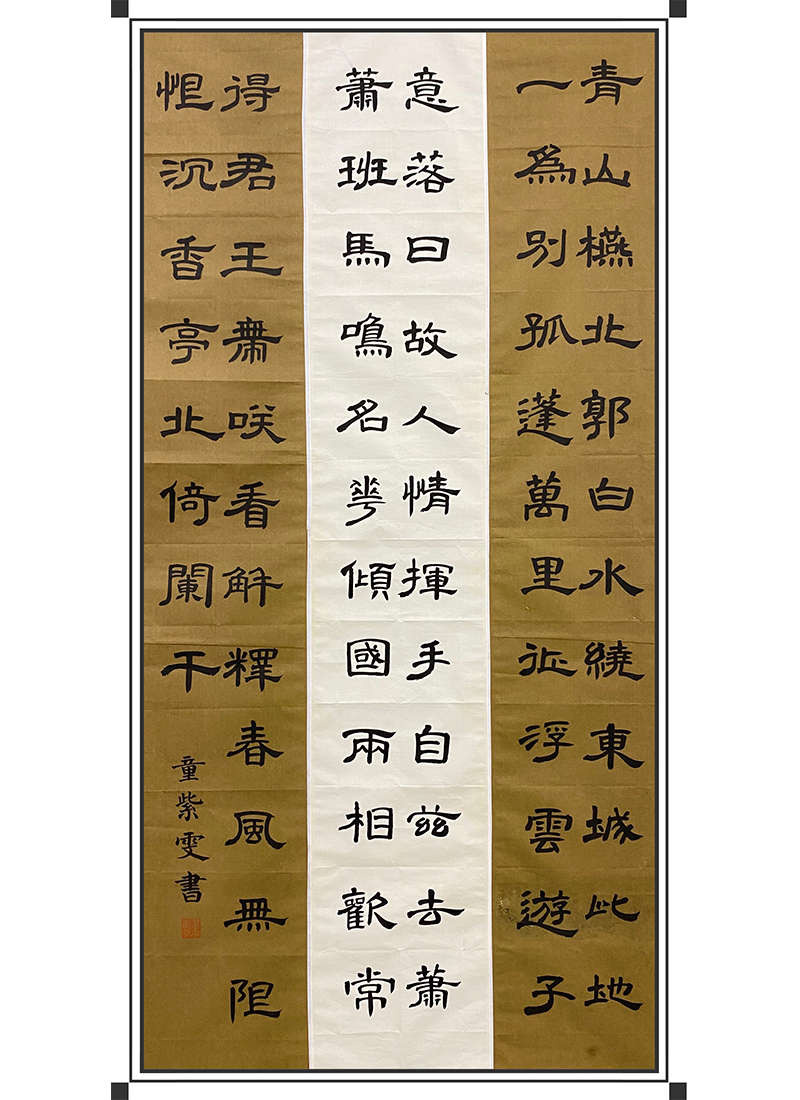 青山橫北郭白水繞東城此地
一爲別孤蓬萬里征浮雲遊子
意落日故人情揮手自茲去蕭
蕭班馬鳴名華傾國兩相歡常
得君王帶咲看解釋春風無限
恨沉香亭北倚闌干
童紫雯書